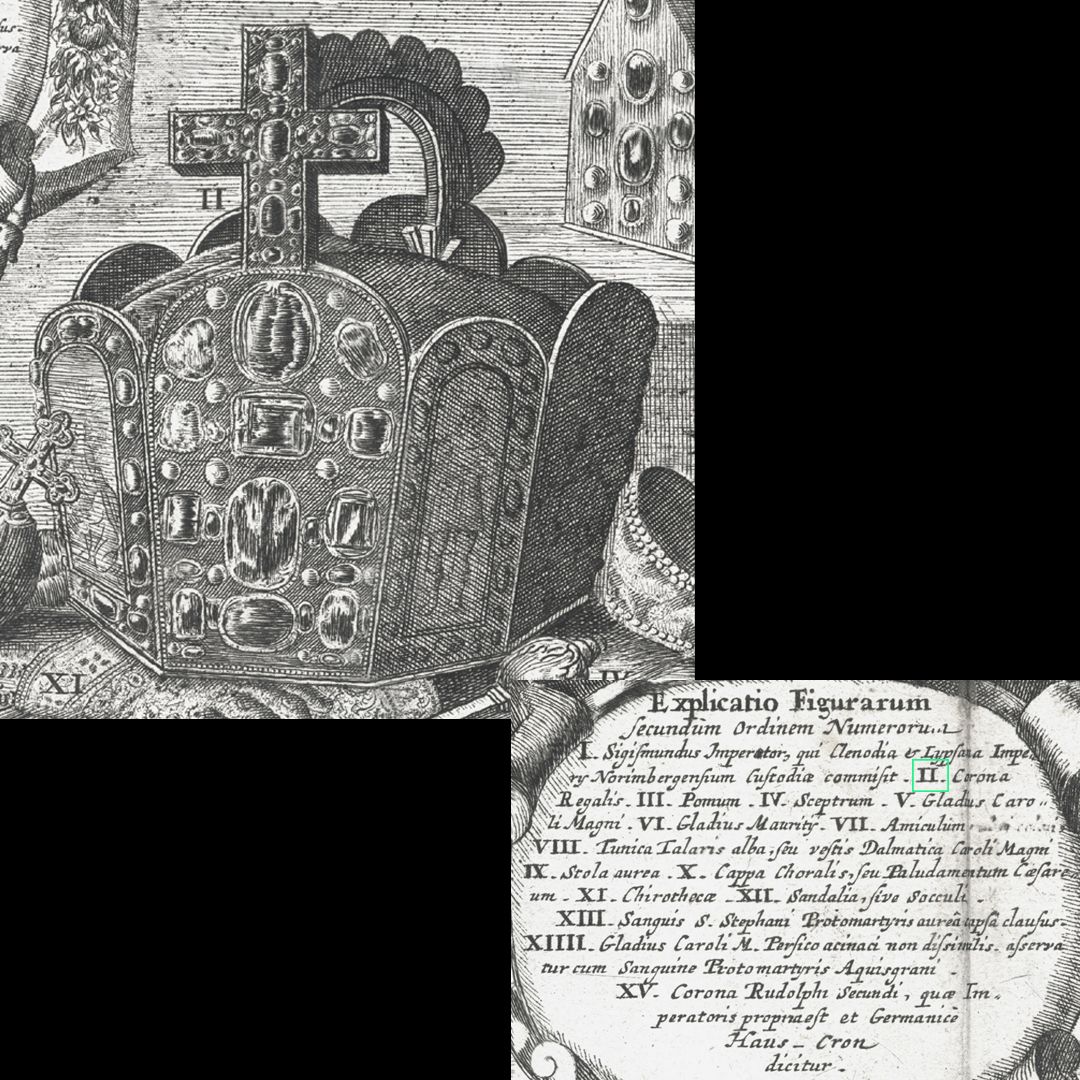 us-
rva
II
XI
IV
Explicatio Figurarum
secundum Ordinem Numerorum
I. Sigismundus Imperator, qui Clenodia & Lypsana Impe
ry Norimbergensium Custodiæ commisit. II. Corona
Regalis. III. Pomum. IV. Sceptrum. V. Gladus Caro-
li Magni. VI. Gladius Maurity. VII. Amiculum
VIII. Tunica Talaris alba, seu vestis Dalmatica Caroli Magni
IX. Stola aurea. X. Cappa Choralis, seu Paludamentum Cæsare
um. XI. Chirothecæ XII. Sandalia, sive Socculi.
XIII. Sanguis S. Stephani Protomartyris aureâ capsâ clausus-
XIIII. Gladius Caroli M. Persico acinaci non dissimilis. asserva
tur cum Sanguine Protomartyris Aquisgrani.
XV. Corona Rudolphi Secundi, quæ Im-
peratoris propria est et Germanicè
Haus-Cron
dicitur.